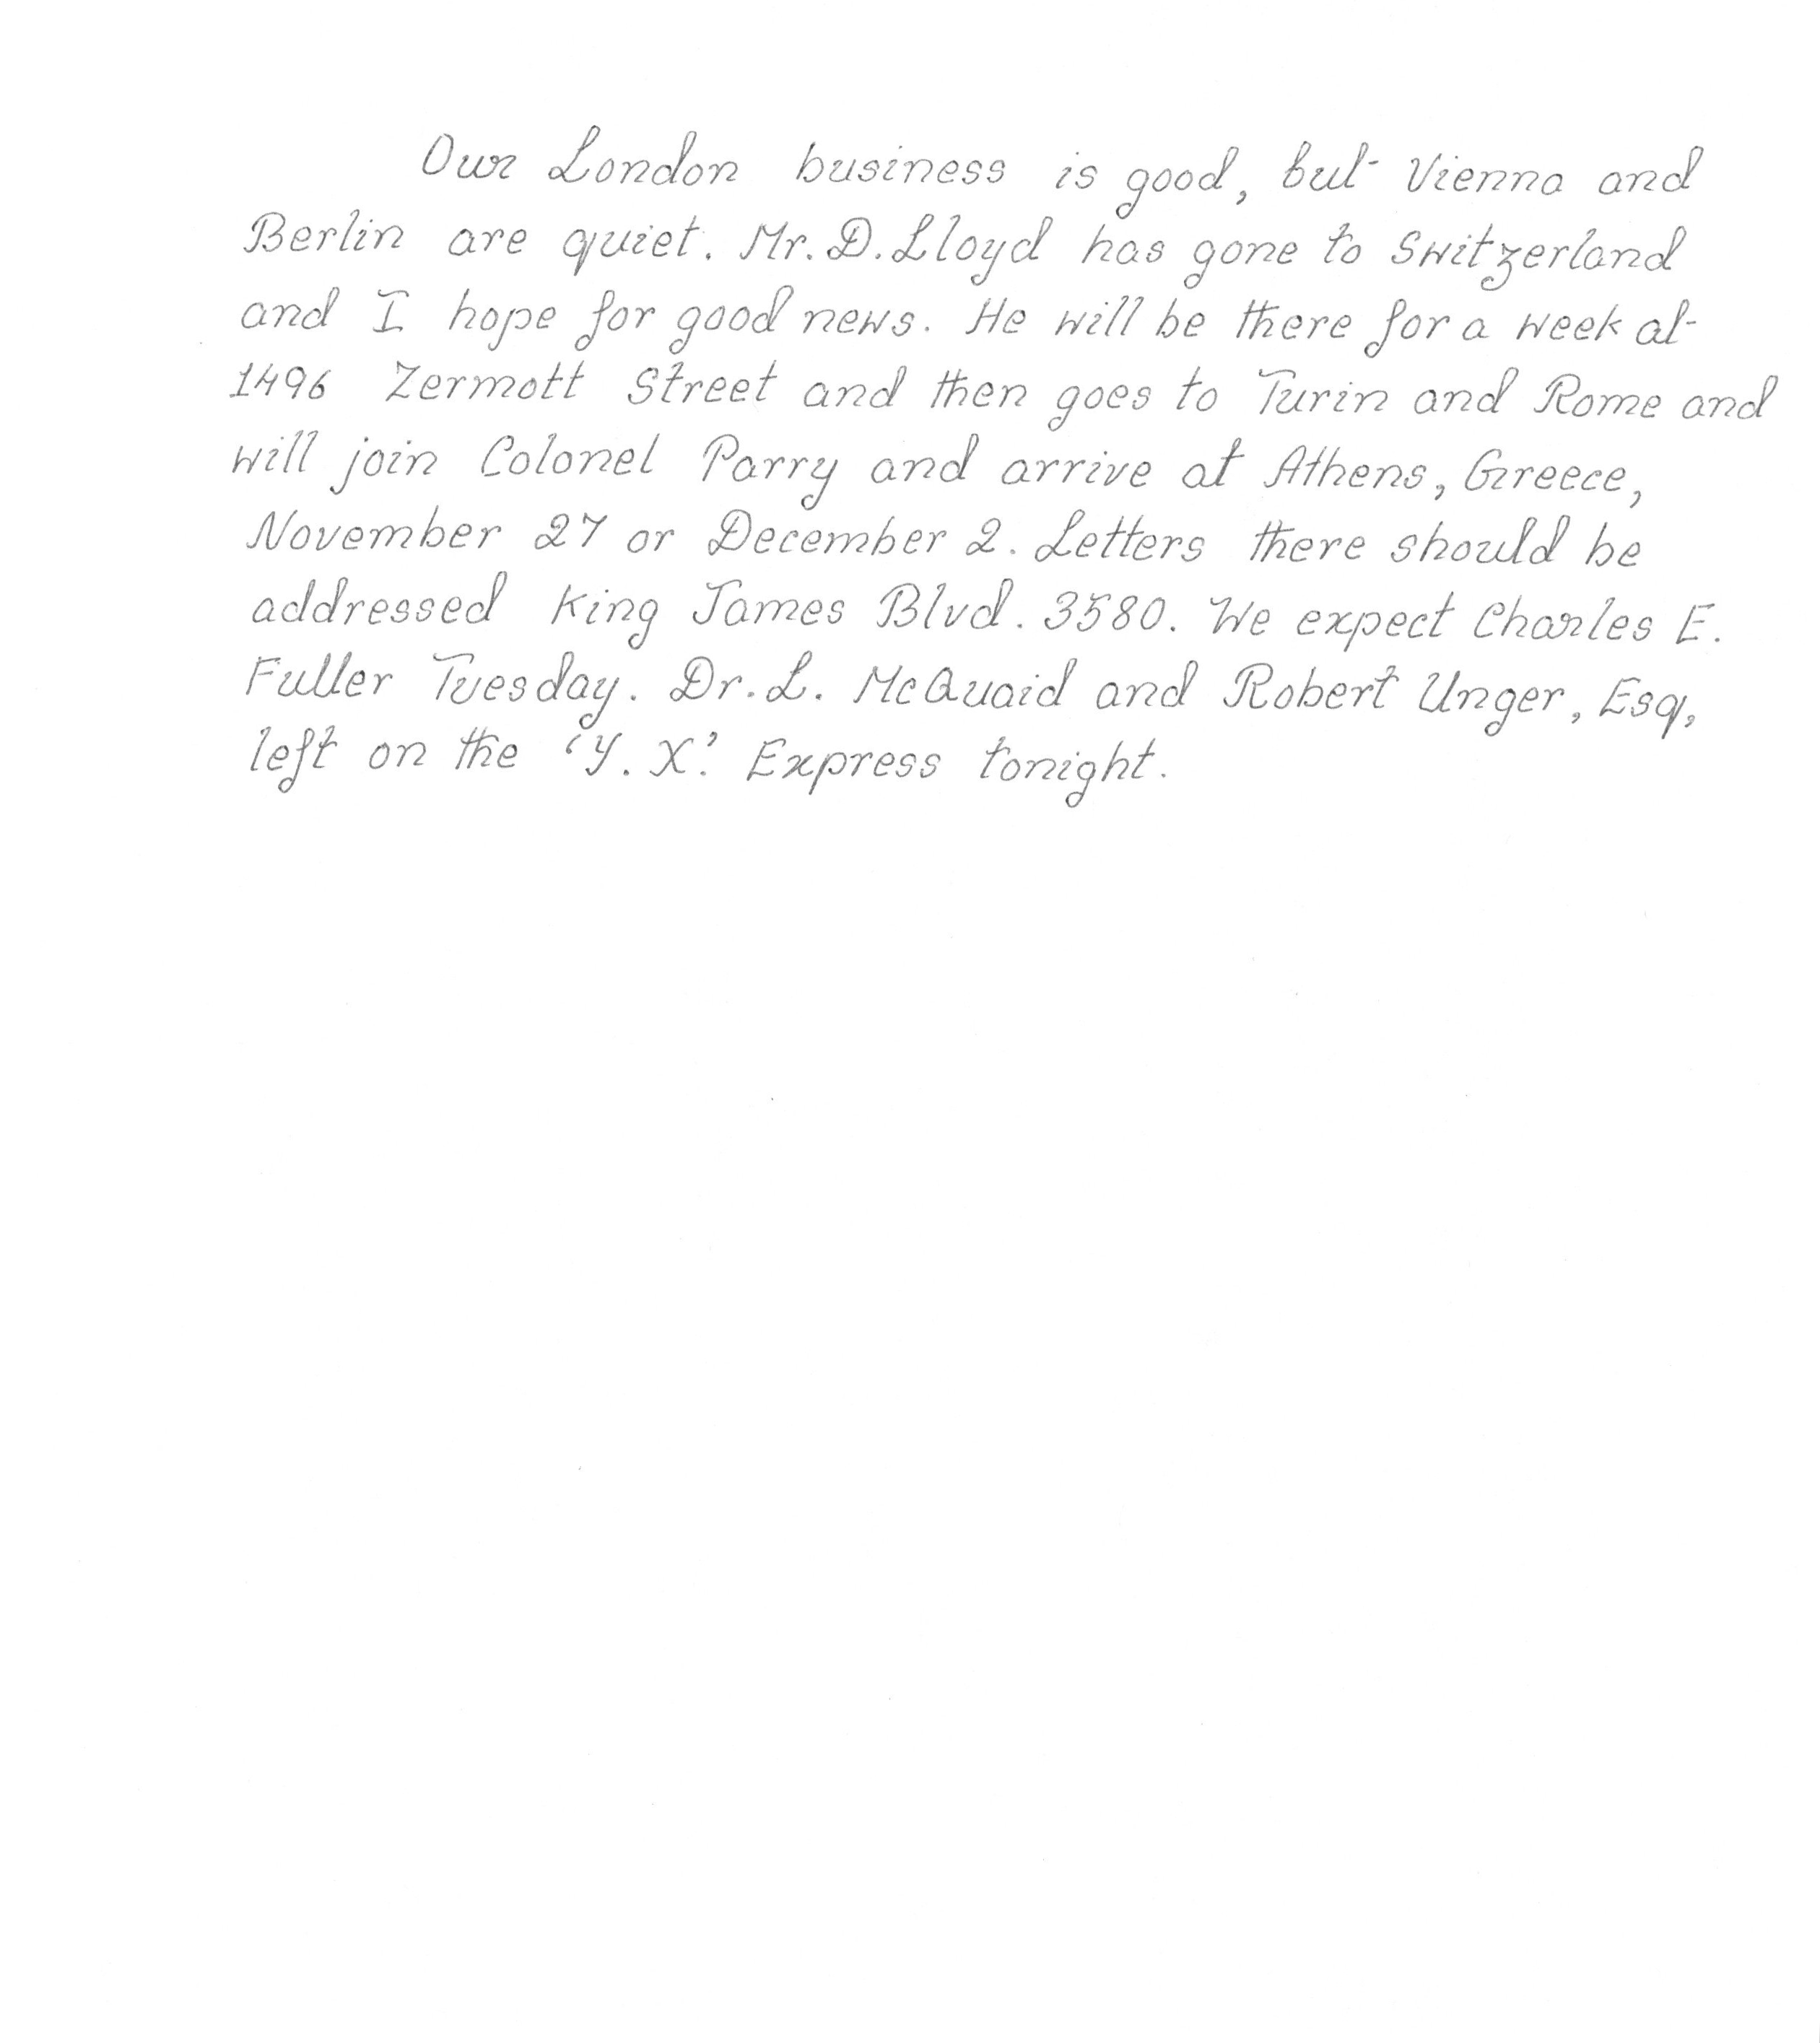 Our London business is good, but Vienna and
Berlin are quiet. Mr. D. Lloyd has gone to Switzerland
and I hope for good news. He will be there for a week at
1496 Zermott Street and then goes to Turin and Rome and
will join Colonel Parry and arrive at Athens, Greece,
November 27 or December 2. Letters there should be
addressed King James Blvd. 3580. We expect Charles E.
Fuller Tuesday. Dr. L. McQuaid and Robert Unger, Esq,
left on the 'Y. X.' Express tonight.